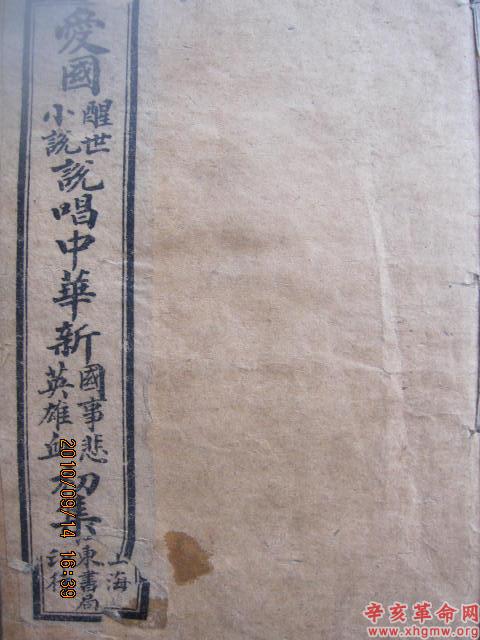 愛國
醒世
小說
說唱中華新
國事悲
英雄血
初集
上海
東書局
印行
2010/09/14 16:39
辛亥革命网
www.xhgmw.org